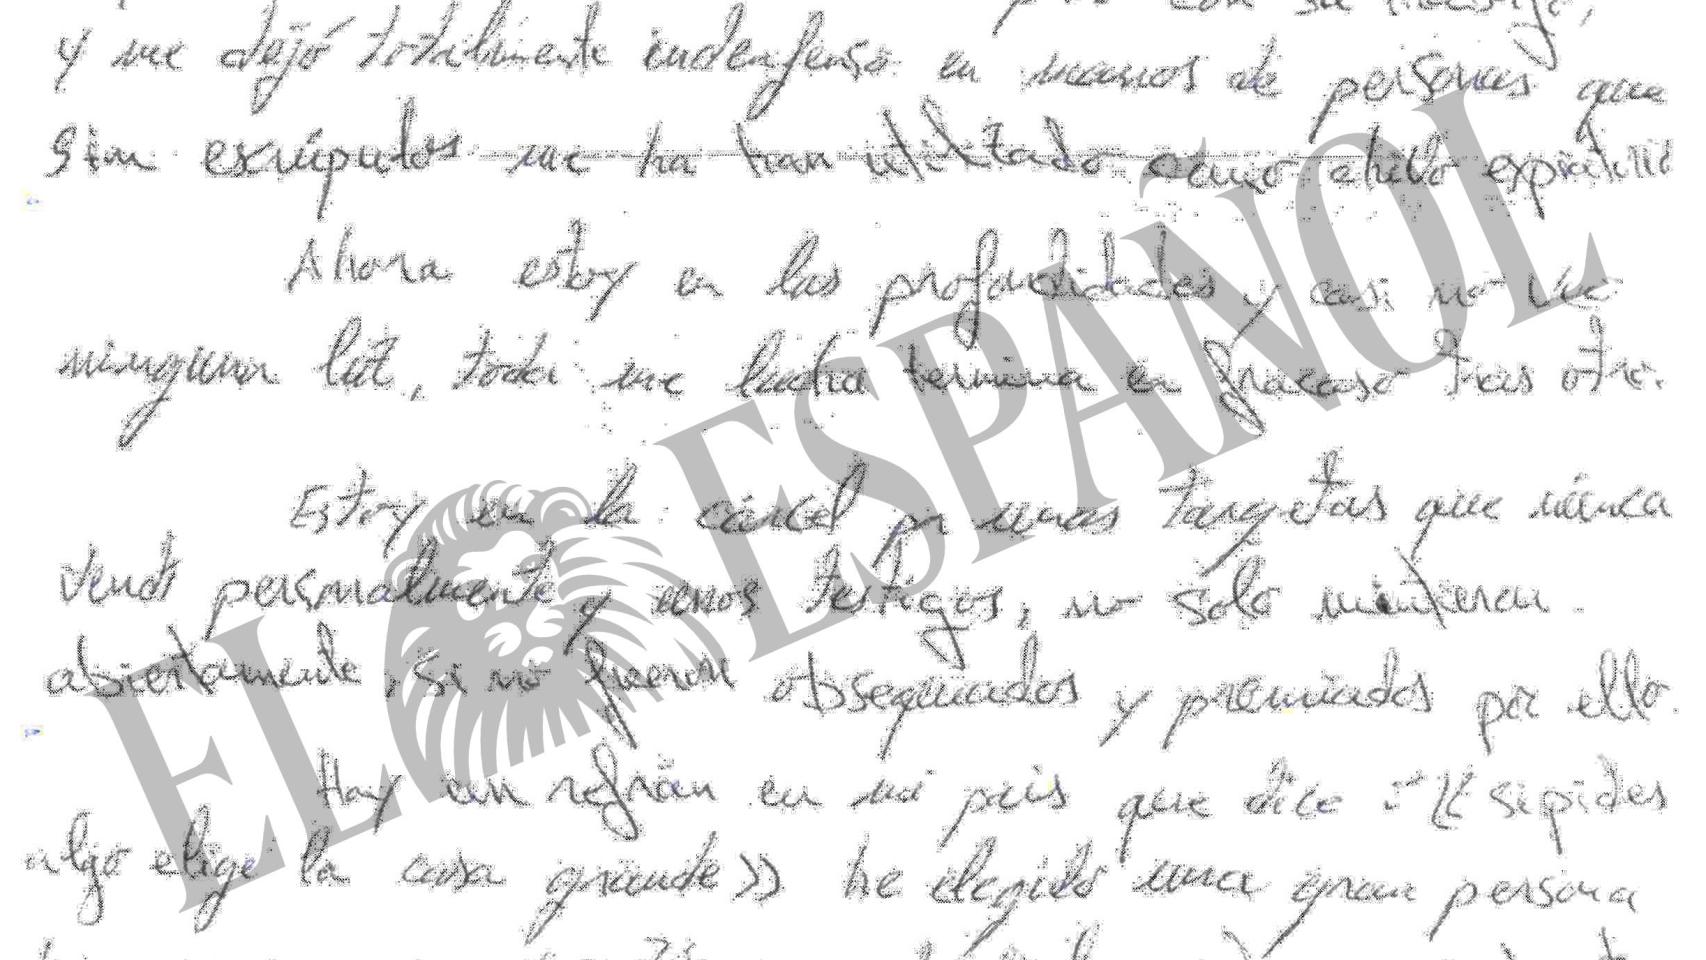 con su
y me dejó totalmente indenfenso en manos de personas que
sim escrúpulos me ha han utilitado como chibo expiatirio
Ahora estoy en las profundidades y casi no veo
ninguna lut, toda me lucha termina en fracaso tras otro.
Estoy en la cárcel por unas targetas que núnca
vendi personalmente y unos testigos, no solo mintieron
abiertamente, si no fueron obsequiados y premiados por ello.
Hay un refrán en mi pais que dice : << si pides
algo elige la casa grande >> he elegido una gran persona
EL ESPAÑOL